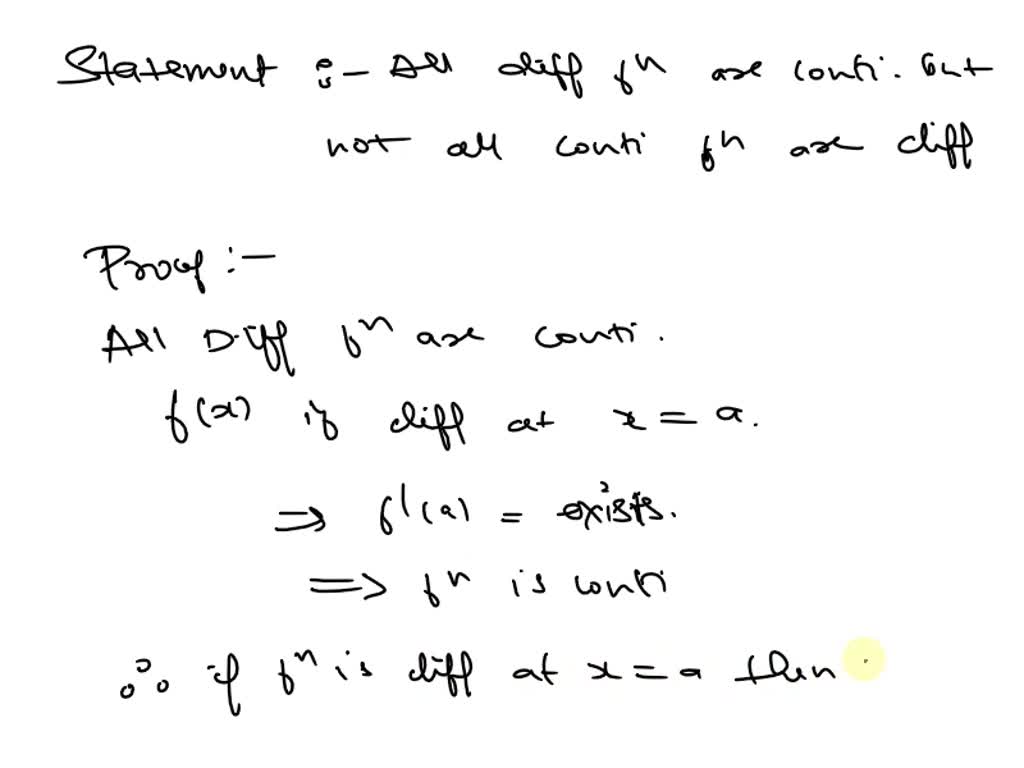 Statement :- All diff fⁿ are conti. but
not all conti fⁿ are diff
Proof :-
All Diff fⁿ are conti.
f(x) if diff at x = a.
⇒ f'(a) = exists.
⇒ fⁿ is conti
∴ if fⁿ is diff at x = a then